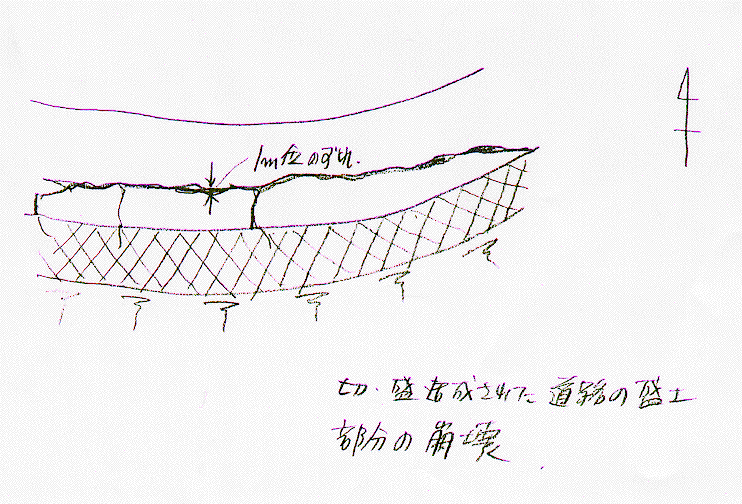 1m位のずれ.
切・盛造成された道路の盛土
部分の崩壊